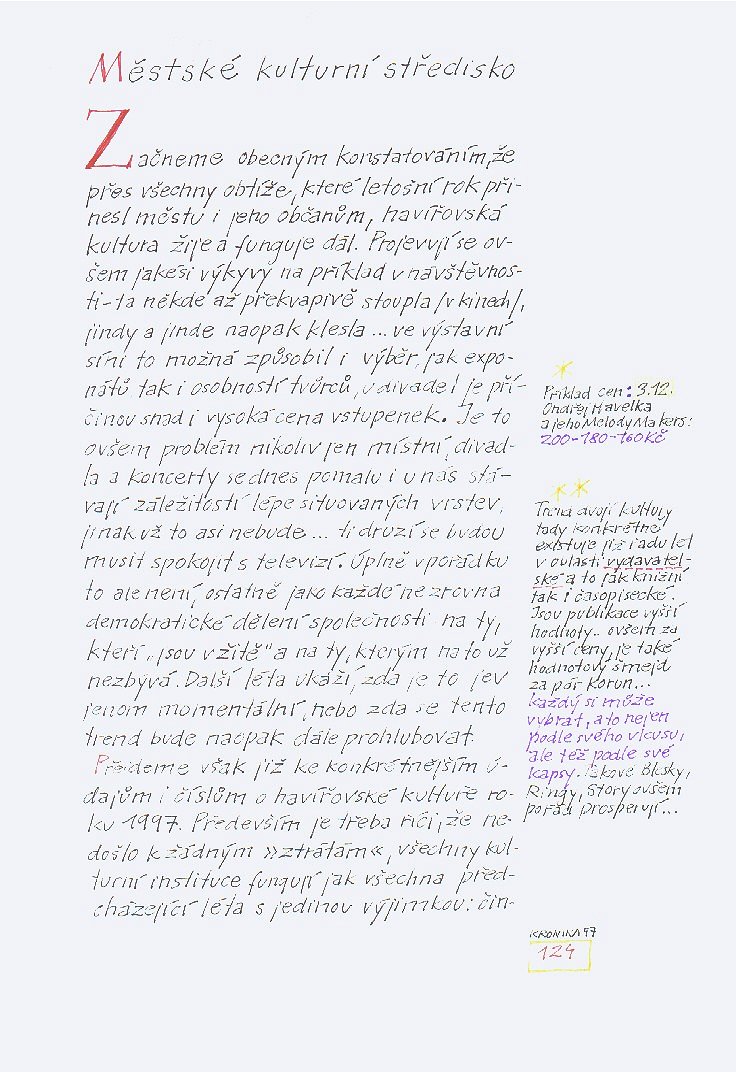 Městské kulturní středisko
Začneme obecným konstatováním, že
přes všechny obtíže, které letošní rok při-
nesl městu i jeho občanům, havířovská
kultura žije a funguje dál. Projevují se ov-
šem jakési výkyvy na příklad v návštěvnos-
ti-ta někde až překvapivě stoupla /v kinech/,
jindy a jinde naopak klesla ... ve výstavní
síni to možná způsobil i výběr, jak expo-
nátů, tak i osobností tvůrců, v divadel je pří-
činou snad i vysoká cena vstupenek. Je to
ovšem problém nikoliv jen místní, divad-
la a koncerty se dnes pomalu i u nás stá-
vají záležitostí lépe situovaných vrstev,
jinak už to asi nebude ... ti druzí se budou
musit spokojit s televizí. Úplně v pořádku
to ale není, ostatně jako každé ne zrovna
demokratické dělení společnosti na ty,
kteří „jsou v žitě" a na ty, kterým na to už
nezbývá. Další léta ukáží, zda je to jev
jenom momentální, nebo zda se tento
trend bude naopak dále prohlubovat.
Přejdeme však již ke konkrétnějším ú-
dajům i číslům o havířovské kultuře ro-
ku 1997. Především je třeba říci, že ne-
došlo k žádným »ztrátám«, všechny kul-
turní instituce fungují jak všechna před-
cházející léta s jedinou výjimkou: čin-
*
Příklad cen: 3.12.
Ondřej Havelka
a jeho Melody Makers:
200-180-160Kč
**
Trend dvojí kultury
tady konkrétně
existuje již řadu let
v oblasti vydavatel-
ské a to jak knižní
tak i časopisecké.
Jsou publikace vyšší
hodnoty.. ovšem za
vyšší ceny, je také
hodnotový šmejd
za pár korun...
každý si může
vybrat, a to nejen
podle svého vkusu,
ale též podle své
kapsy. Takové Blesky,
Ringy, Story ovšem
pořád prosperují...
KRONIKA 97
124